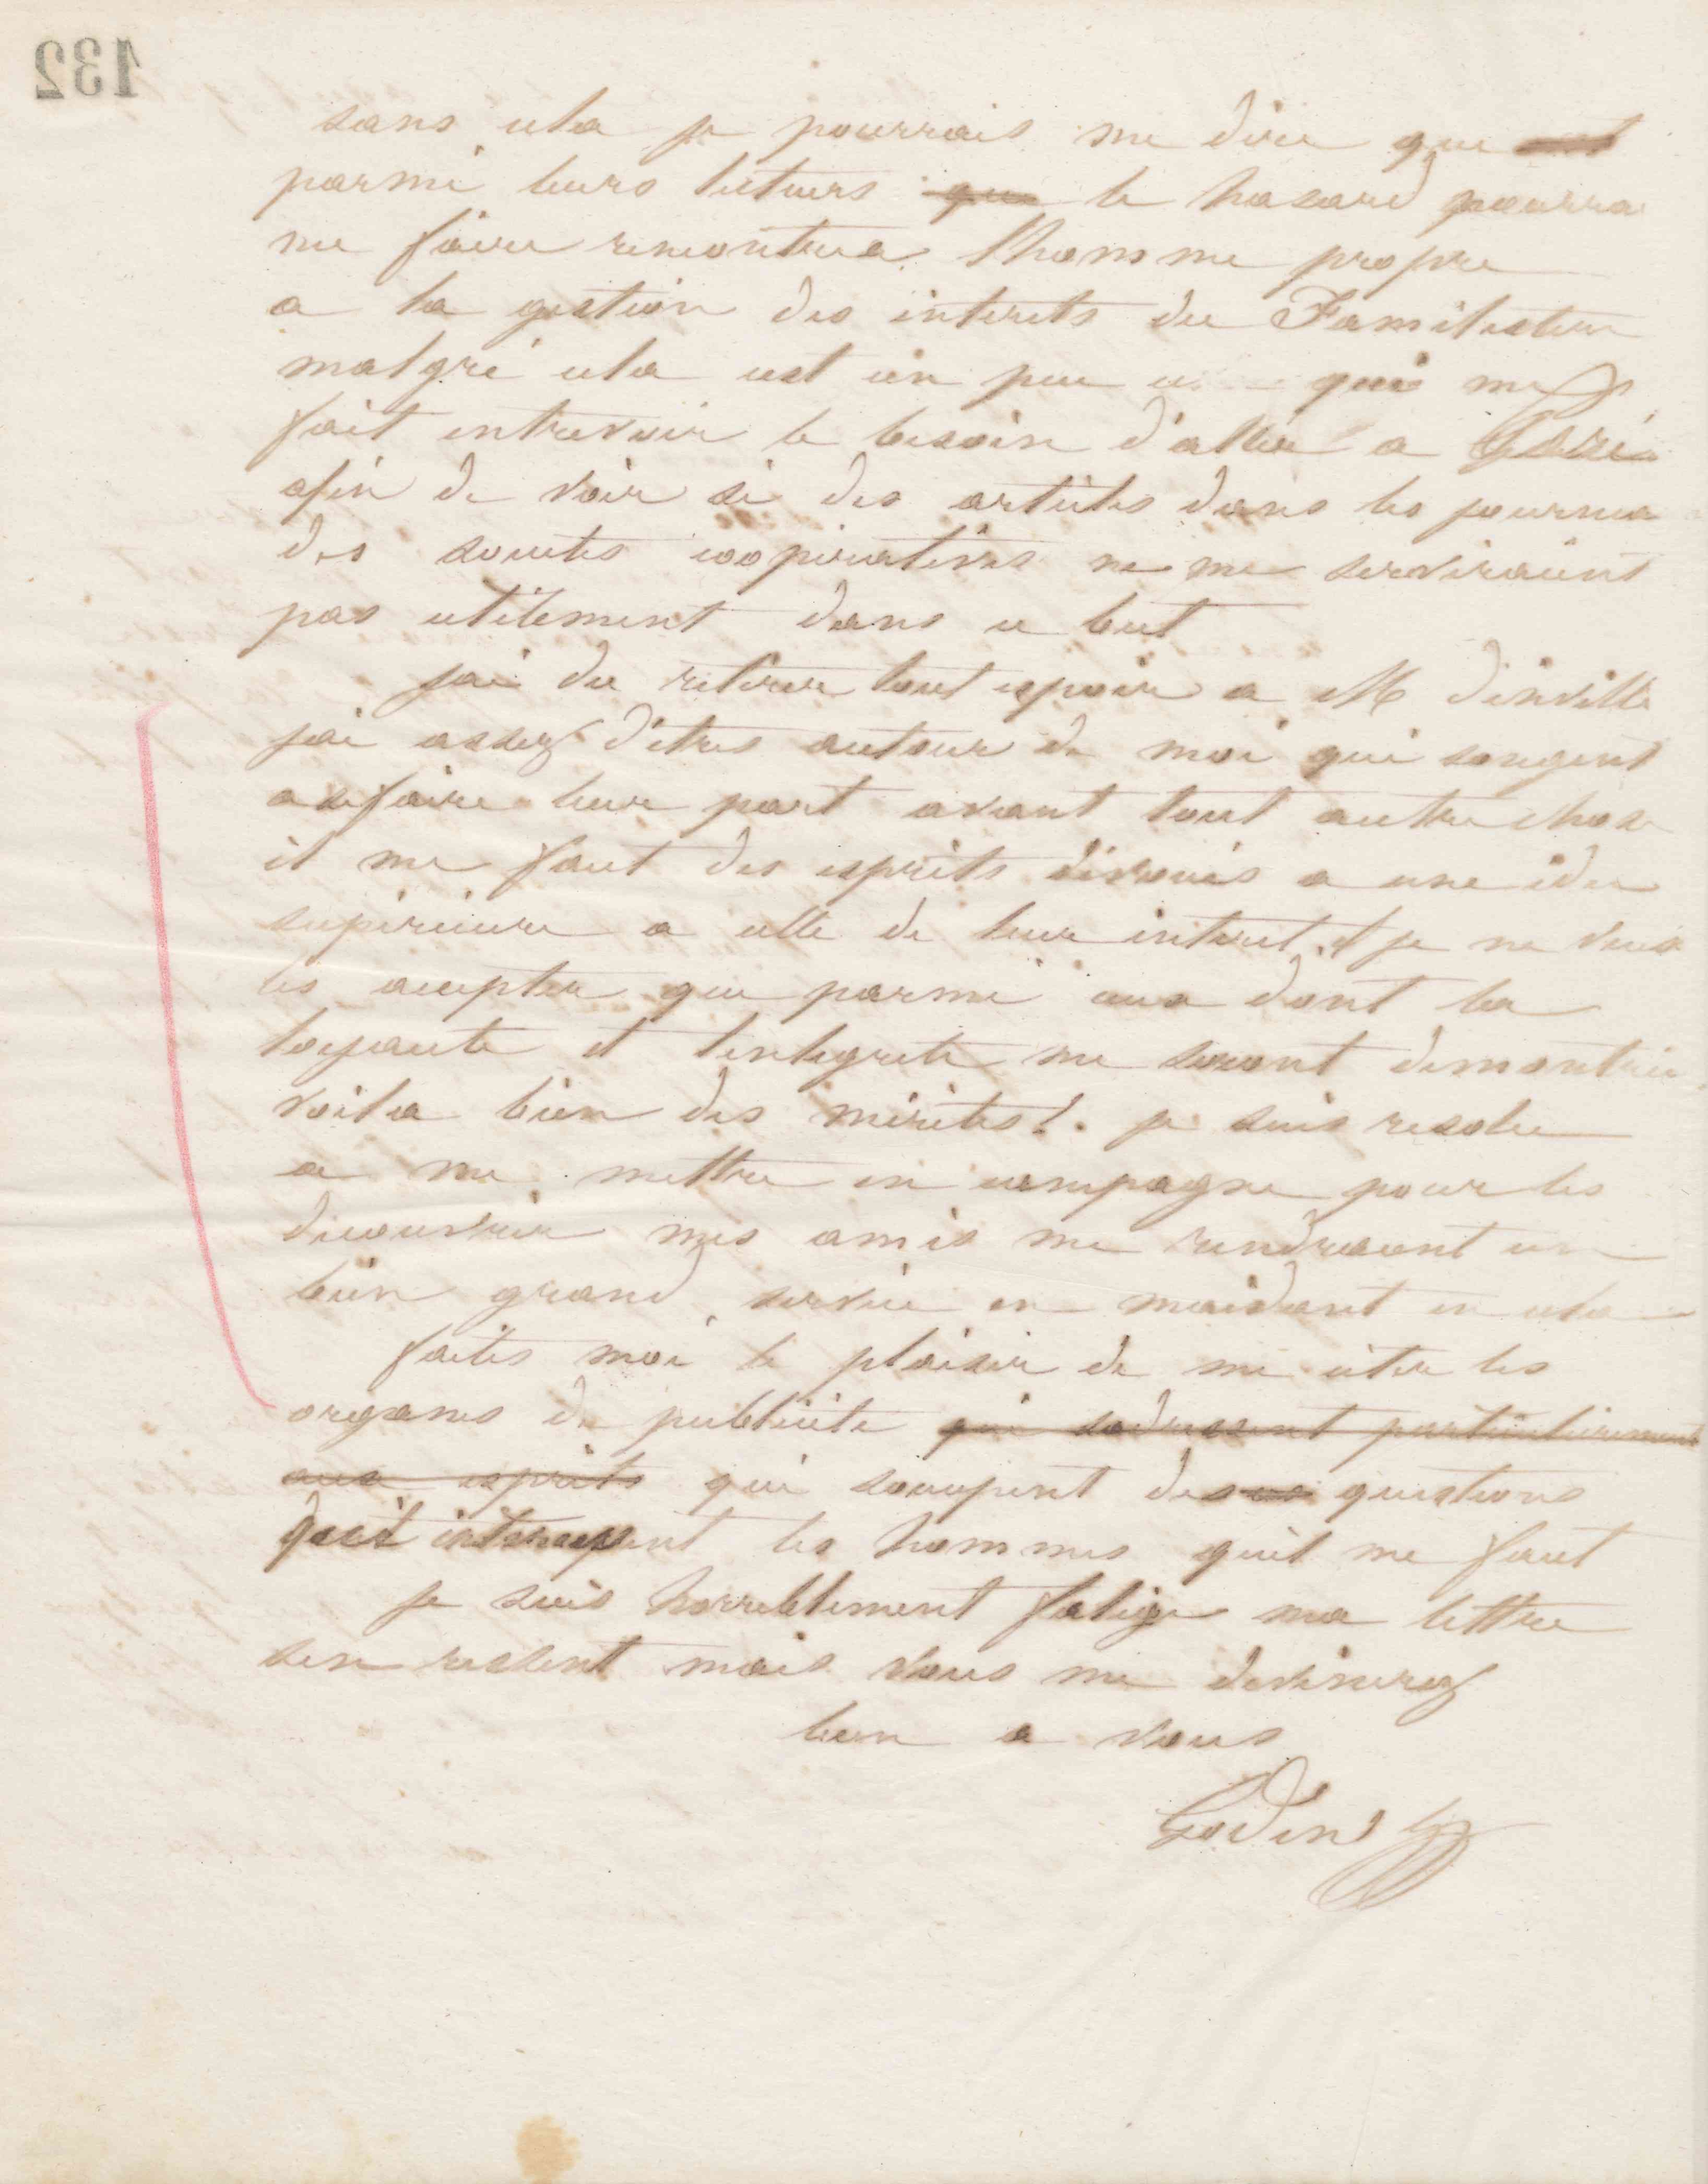 132
sans cela je pourrais me dire que
parmi leurs lecteurs que le hasard pourra
me faire rencontrer l'homme propre
a la gestion des interets du Familistere
malgré cela cest un peu ce qui me
fait entrevoir le besoin d'aller a Paris
afin de voir si des articles dans les journa
des societes cooperatives ne me serviraient
pas utilement dans ce but
jai du retirer tout espoir a M d'inville
jai assez d'etres autour de moi qui songent
a se faire leur part avant tout autre chose
il me faut des esprits dévoués a une idee
superieure a celle de leur interet. et je ne veux
les accepter que parmi ceux dont la
loyauté et lintegrite me seront demontrée
voila bien des mérites!. je suis resolu
a me mettre en campagne pour les
decouvrir mes amis me rendraient un
bien grand service en maidant en cela
faites moi le plaisir de me citer les
organes de publicite qui sadressent particulierement
aux esprits qui soccupent des questions
les hommes quil me faut
je suis horriblement fatigé ma lettre
sen ressent mais vous me devinerez
bien a vous
Godin